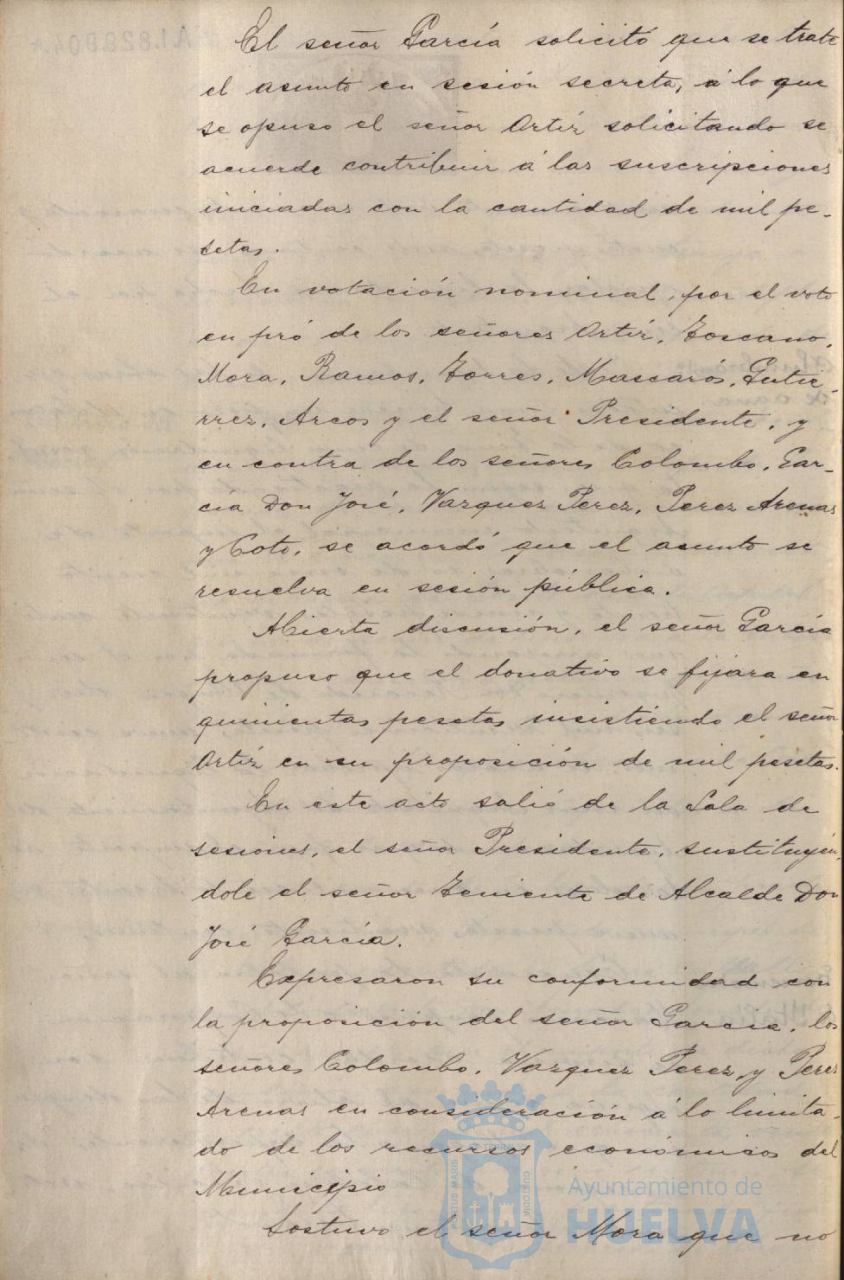 El señor García solicitó que se trate
el asunto en sesión secreta, á lo que
se opuso el señor Ortíz solicitando se
acuerde contribuir á las suscripciones
iniciadas con la cantidad de mil pe-
setas.
En votación nominal, por el voto
en pró de los señores Ortíz, Toscano,
Mora, Ramos, Torres, Mascarós, Gutie-
rrez, Arcos y el señor Presidente, y
en contra de los señores Colombo, Gar-
cía Don José, Vazquez Perez, Perez Arenas
y Coto, se acordó que el asunto se
resuelva en sesión pública.
Abierta discusión, el señor García
propuso que el donativo se fijara en
quinientas pesetas insistiendo el señor
Ortíz en su proposición de mil pesetas.
En este acto salió de la Sala de
sesiones, el señor Presidente, sustituyén-
dole el señor Teniente de Alcalde Don
José García.
Expresaron su conformidad con
la proposición del señor García, los
señores Colombo, Vazquez Perez, y Perez
Arenas en consideración á lo limita-
do de los recursos económicos del
Municipio
Sostuvo el señor Mora que no
Ayuntamiento de
HUELVA